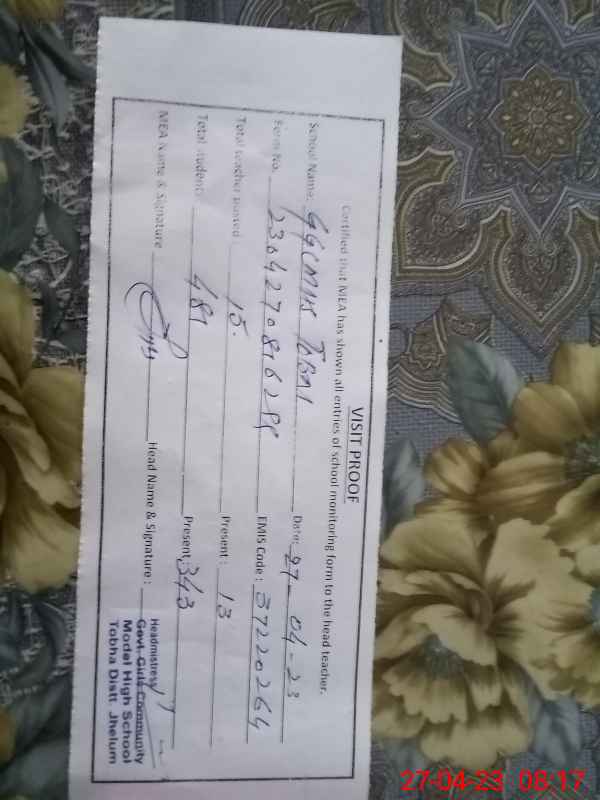 VISIT PROOF
Certified that MEA has shown all entries of school monitoring form to the head teacher.
School Name: GGCMHS TOBAI Date: 27-04-23
Form No. EMIS Code: 37220264
Total teacher posted 15. Present: 13
Total students 481 Present 343
MEA Name & Signature Head Name & Signature:
Headmistress
Govt. Girls Community
Model High School
Tobha Distt. Jhelum
27-04-23 08:17